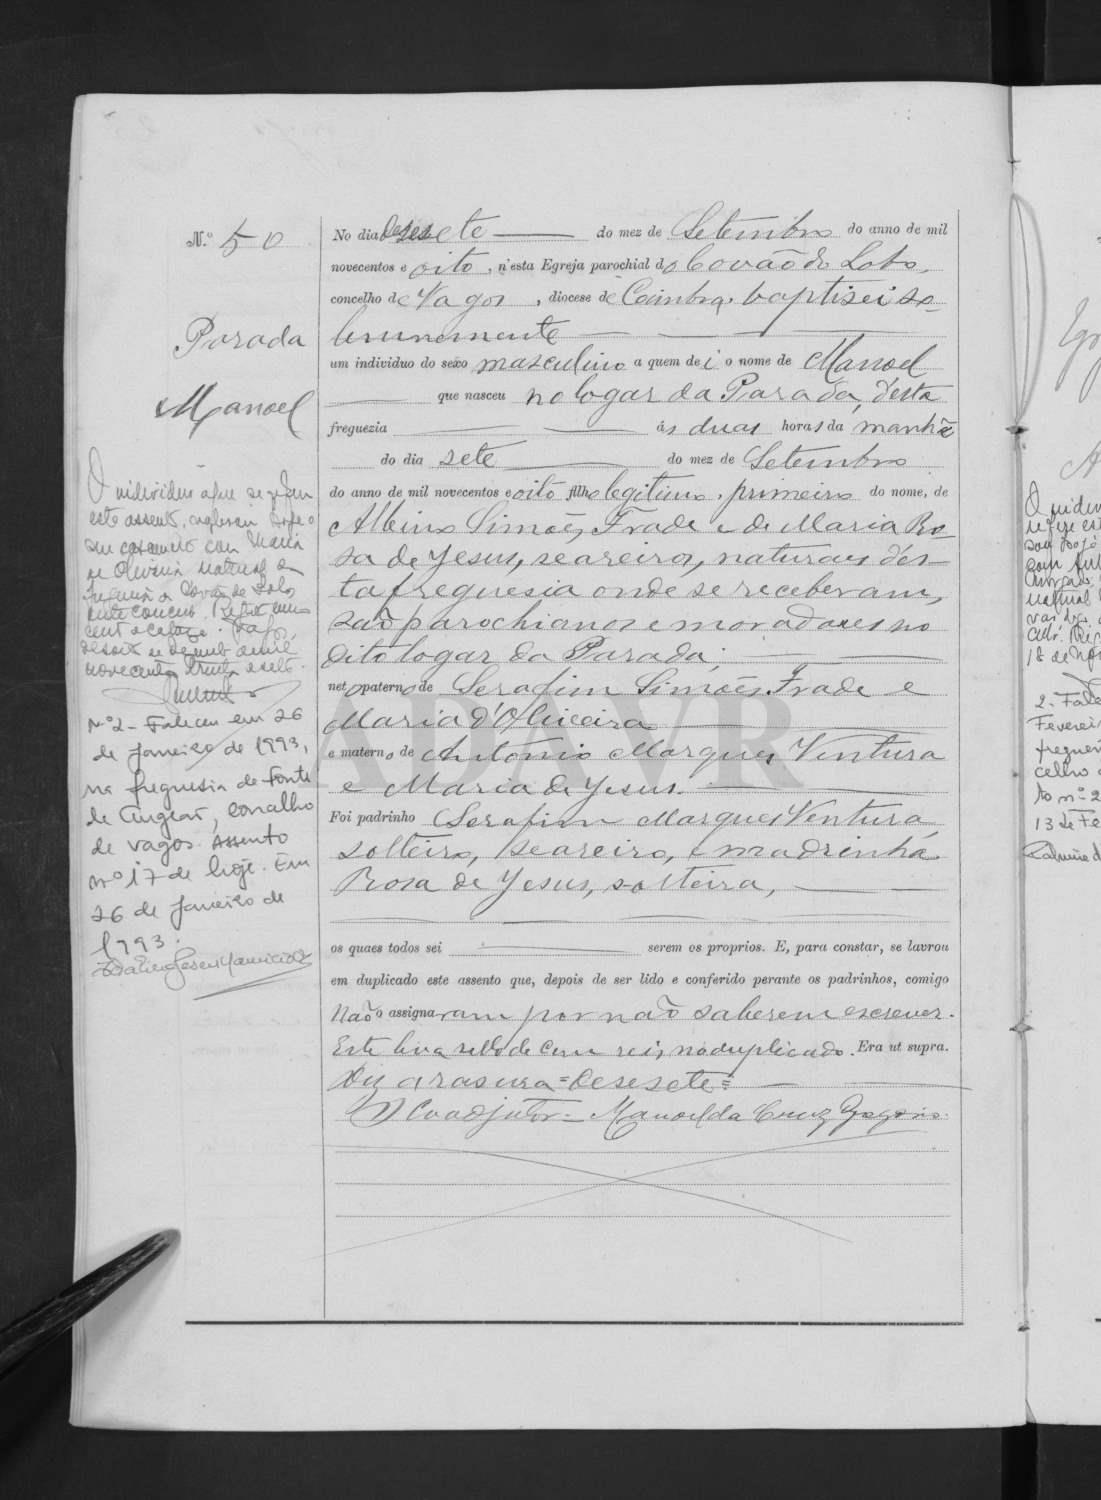 N.º 50
Parada
Manoel
No dia desesete do mez de Setembro do anno de mil
novecentos e oito, n'esta Egreja parochial do Covão do Lobo,
concelho de Vagos, diocese de Coimbra, baptisei so-
lemnemente
um individuo do sexo masculino a quem dei o nome de Manoel
que nasceu no logar da Parada, d'esta
freguezia ás duas horas da manhã
do dia sete do mez de Setembro
do anno de mil novecentos e oito filho legitimo, primeiro do nome, de
Albino Simões Frade e de Maria Ro-
sa de Jesus, seareiros, naturaes d'es-
ta freguesia onde se receberam,
são parochianos e moradores no
dito logar da Parada;
neto paterno de Serafim Simões Frade e
Maria d'Oliveira
e materno de Antonio Marques Ventura
e Maria de Jesus.
Foi padrinho Serafim Marques Ventura,
solteiro, seareiro, e madrinha
Rosa de Jesus, solteira,
os quaes todos sei serem os proprios. E, para constar, se lavrou
em duplicado este assento que, depois de ser lido e conferido perante os padrinhos, comigo
não o assignaram por não saberem escrever.
Este leva sello de cem reis no duplicado. Era ut supra.
Diz a rasura = desesete =
O Coadjutor = Manoel da Cruz
O individuo a que se refere
este assento, celebrou
seu casamento com Maria
de Oliveira natural da
freguesia de Covão do Lobo
deste concelho.
Vagos,
desoito de de mil
novecentos trinta e sete.
Nº 2 - Faleceu em 26
de Janeiro de 1993,
na freguesia de Fonte
de Angeão, concelho
de Vagos. Assento
nº 17 de hoje. Em
26 de Janeiro de
1993.
ADAVR
O individ
2- Fale
Feverei
fregue
celho
to nº 2
13 de Fe